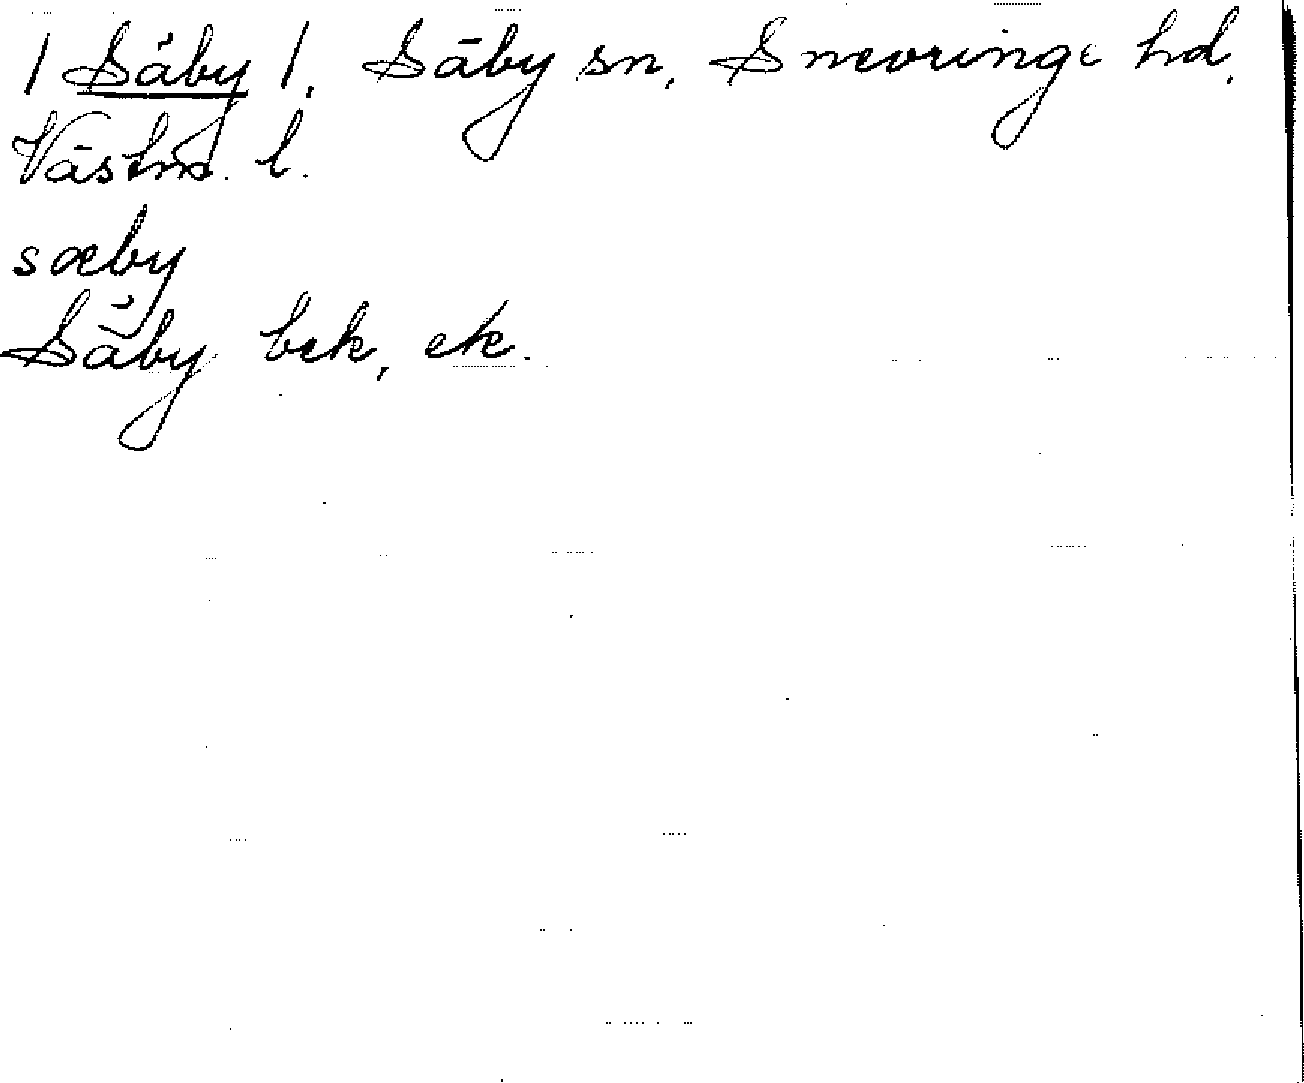 1 Säby 1. Säby sn, Snevringe hd,
Västm. l.
sæby
Säby bek, ek.